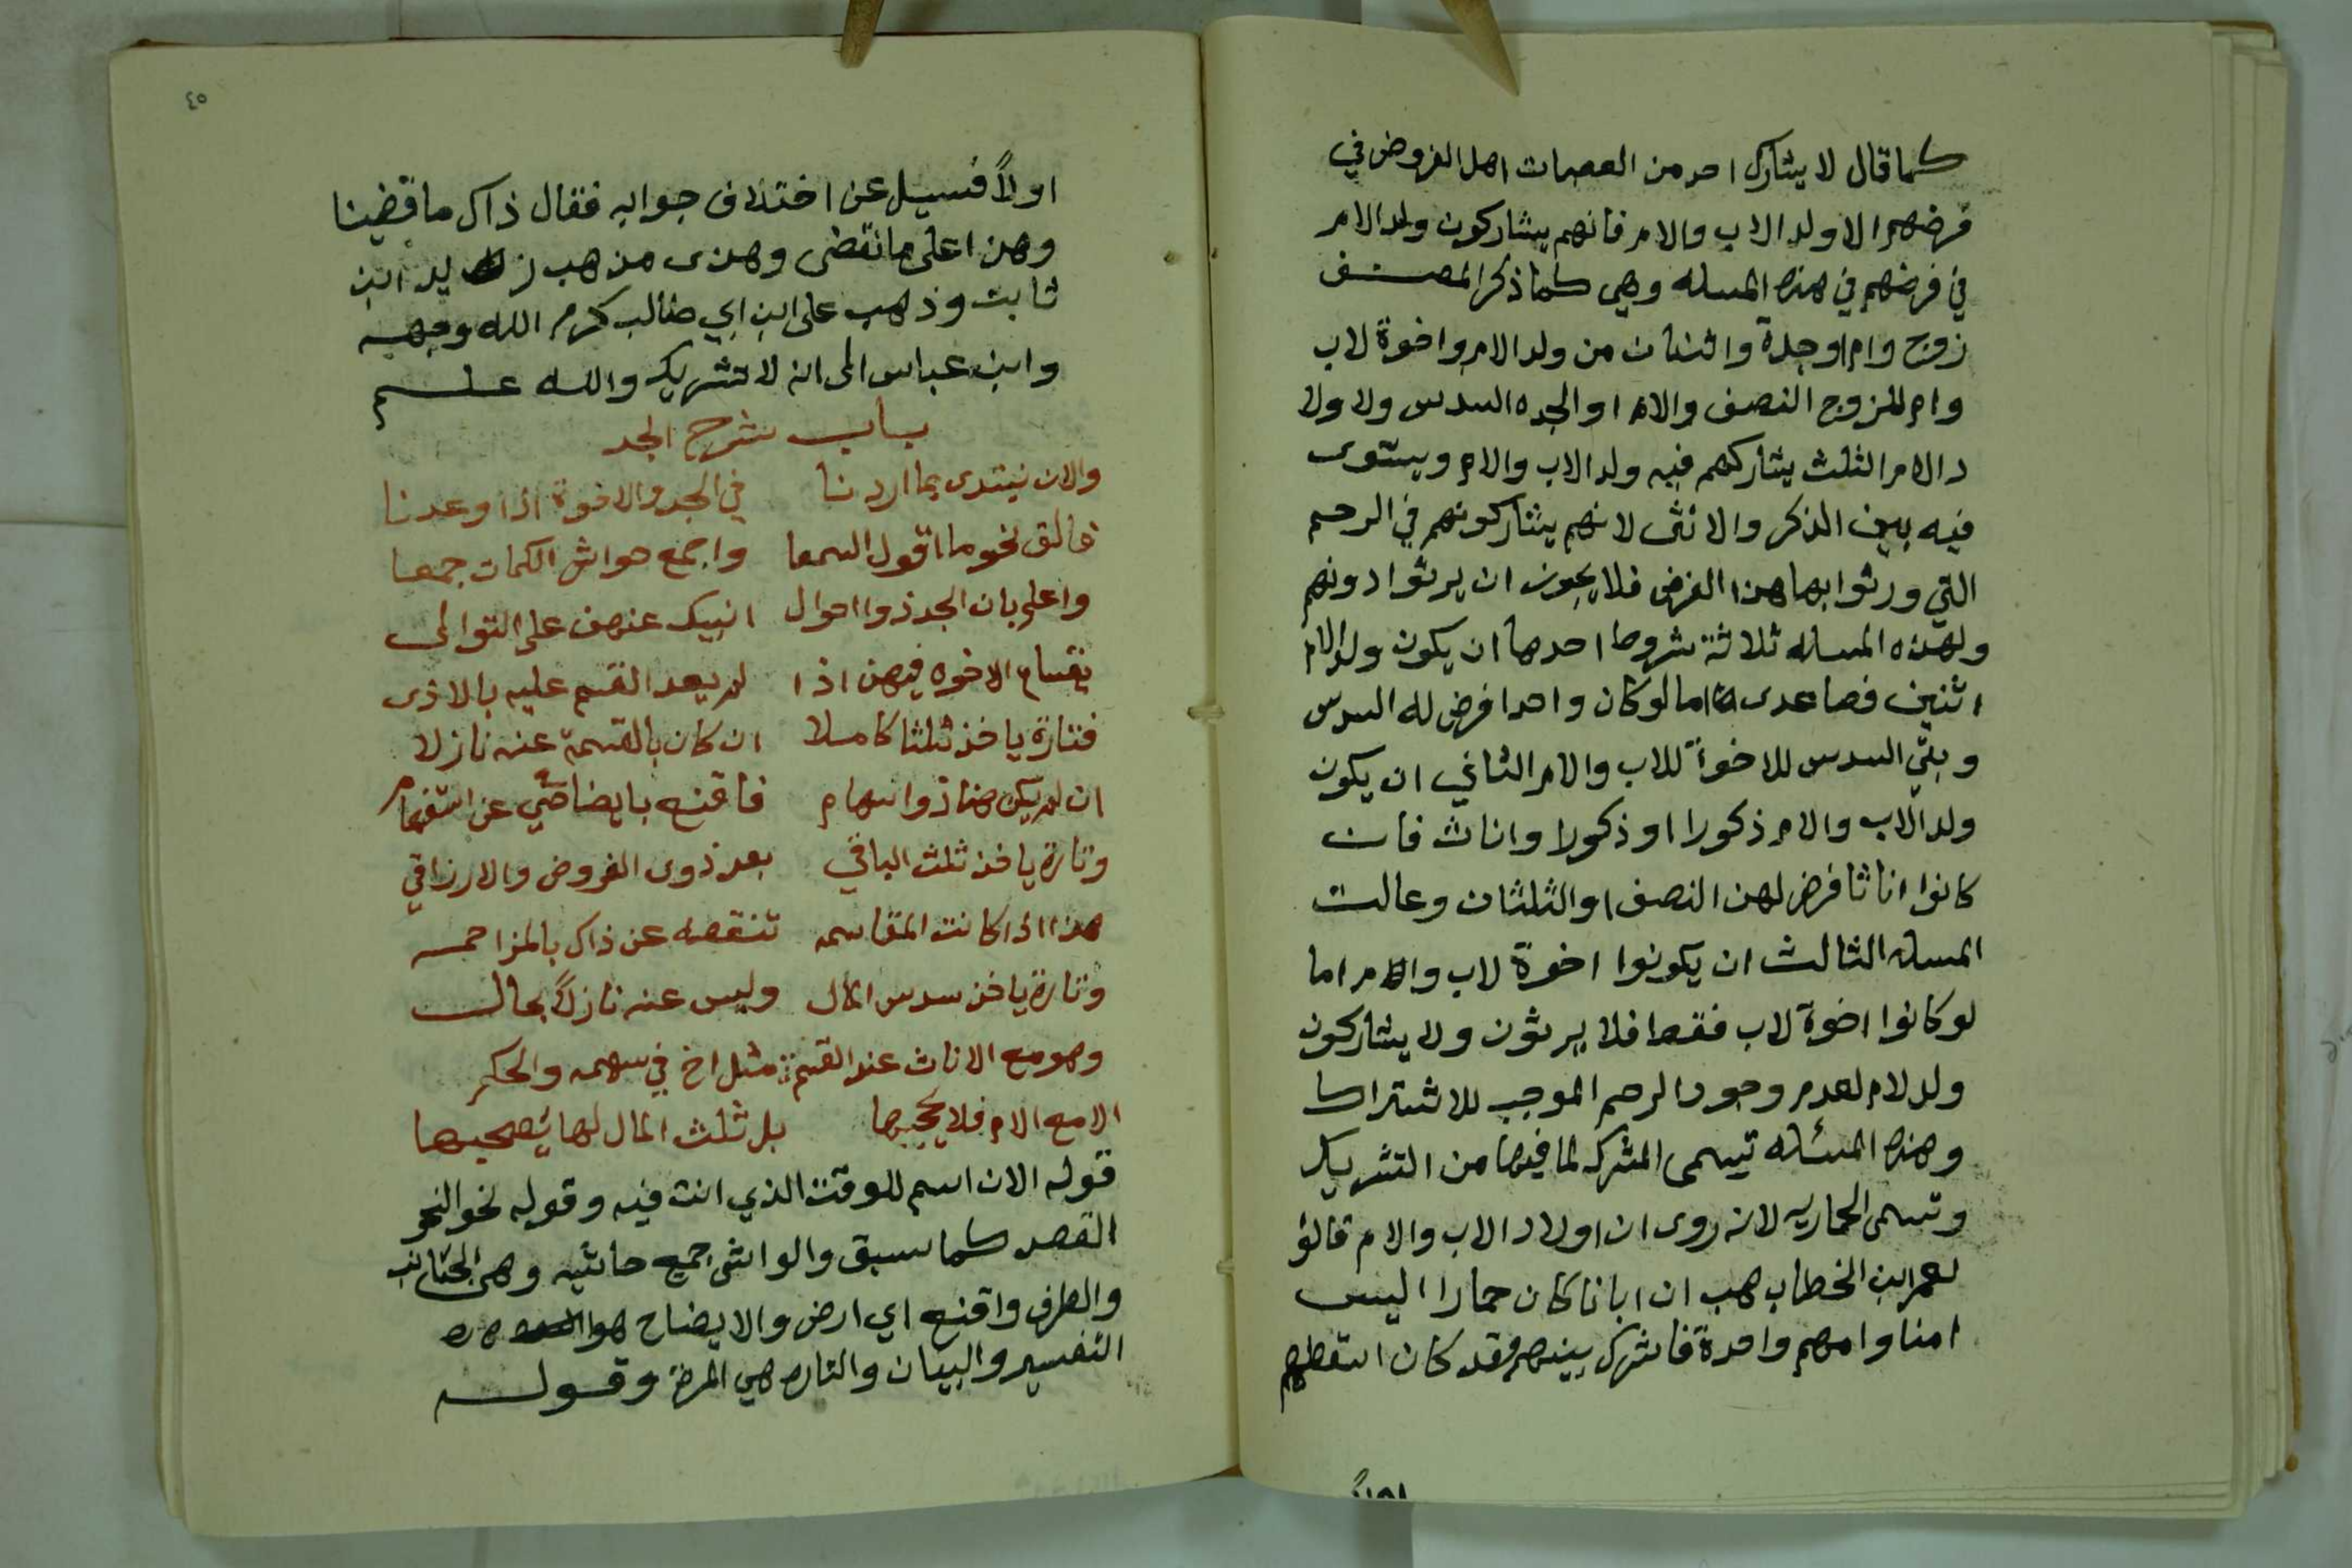 كما قال لا يشارك احد من العصبات اهل الفروض في
فرضهم الا ولد الاب والام فانهم يشاركون ولد الام
في فرضهم في هذه المسله وهي كما ذكر المصنف
زوج وام او جدة واثنتان من ولد الام واخوة لاب
وام للزوج النصف والام او الجده السدس ولا ولا
د الام الثلث يشاركهم فيه ولد الاب والام ويستوى
فيه بين الذكر والانثى لانهم يشاركونهم في الرحم
التي ورثوا بها هذا الفرض فلا يجوز ان يرثوا دونهم
ولهذه المساله ثلاثة شروط احدها ان يكون ولد الام
اثنين فصاعدى اما لو كان واحدا فرض له السدس
وبقي السدس للاخوة للاب والام الثاني ان يكون
ولد الاب والام ذكورا او ذكورا واناث فان
كانوا اناثا فرض لهن النصف او الثلثان وعالت
المساله الثالث ان يكونوا اخوة لاب والام اما
لو كانوا اخوة لاب فقط فلا يرثون ولا يشاركون
ولد لام لعدم وجود الرحم الموجب للاشتراك
وهذه المسئله تسمى المشركه لما فيها من التشريك
وتسمى الحماريه لانه روى ان اولاد الاب والام قالو
لعمر ابن الخطاب هب ان ابانا كان حمارا اليس
امنا وامهم واحدة فاشرك بينهم وقد كان اسقطهم
اولاً
٤٥
اولاً فسيل عن اختلاف جوابه فقال ذاك ما قضينا
وهذا على ما نقضى وهذى مذهب زيد ابن
ثابت وذهب على ابن ابي طالب كرم الله وجهه
وابن عباس الى انه لا تشريك والله علم
باب شرح الجد
والان نبتدى بما اردنا في الجد والاخوة اذا وعدنا
فالق نحو ما اقول السمعا واجمع حواش الكمات جمعا
واعلم بان الجد ذوا احوال انبيك عنهن على التوالى
يقسام الاخوه فيهن اذا لم يعد القسم عليه بالاذى
فتارة ياخذ ثلثا كاملا ان كان بالقسمة عنه نازلا
ان لم يكن هنا ذوا سهام فاقنع بايضاحي عن استفهام
وتارة ياخذ ثلث الباقي بعد ذوى الفروض والارزاقي
هذا اذا كانت المقاسمه تنقصه عن ذاك بالمزاحمه
وتارة ياخذ سدس المال وليس عنه نازلاً بحال
وهو مع الاناث عند القسم مثل اخ في سهمه والحكم
الا مع الام فلا يحجبها بل ثلث المال لها يصحبها
قوله الان اسم للوقت الذي انت فيه وقوله نحو النحو
القصد كما سبق والواشى جمع حاشيه وهى الجانب
والطرف واقنع اي ارض والايضاح هو
التفسير والبيان والتاره هي المرة وقوله